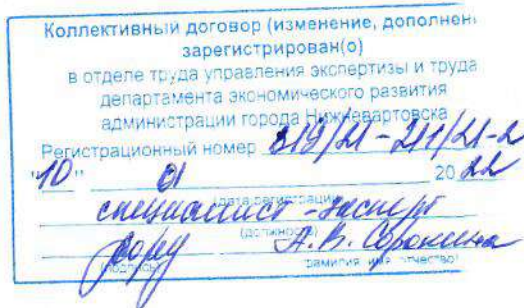 Коллективный договор (изменение, дополнен
зарегистрирован(о)
в отделе труда управления экспертизы и труда
департамента экономического развития
администрации города Нижневартовска
Регистрационный номер 319/21-211/21-2
"10" 01 2022
(дата регистрации)
специалист-эксперт
(должность)
А.В. Сорокина
(подпись) фамилия, имя, отчество)